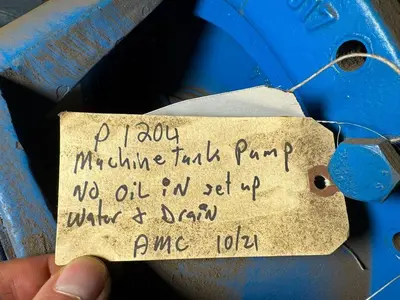 P 1204
Machine Tank Pump
No Oil iN set up
Water & Drain
AMC 10/21